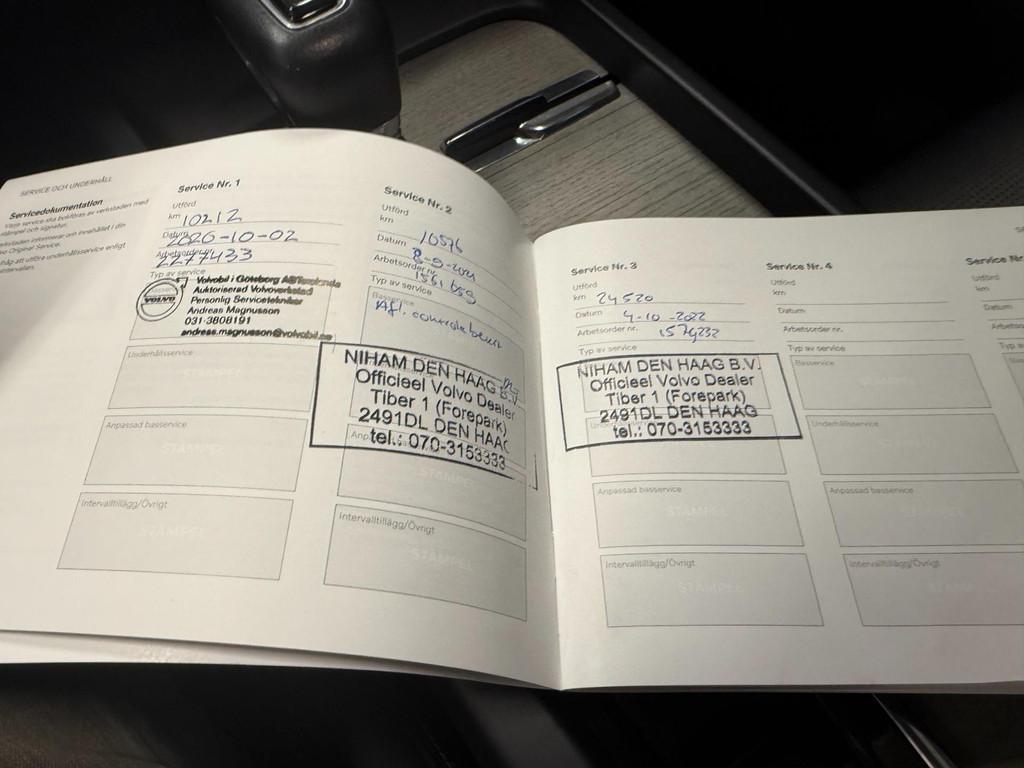 SERVICE OCH UNDERHÅLL
Servicedokumentation
Varje service ska bokföras av verkstaden med
stämpel och signatur.
Service Nr. 1
Utförd
km 10212
Datum 2020-10-02
Arbetsorder nr. 2277433
Typ av service
VOLVO
Volvobil i Göteborg AB
Auktoriserad Volvoverkstad
Personlig Servicetekniker
Andreas Magnusson
031-3808191
andreas.magnusson@volvobil.se
Underhållsservice
STÄMPEL
Anpassad basservice
STÄMPEL
Intervalltillägg/Övrigt
STÄMPEL
Service Nr. 2
Utförd
km 10576
Datum 8-9-2021
Arbetsorder nr.
Typ av service
Basservice
Afl. controlebeurt
NIHAM DEN HAAG B.V.
Officieel Volvo Dealer
Tiber 1 (Forepark)
2491DL DEN HAAG
tel.: 070-3153333
STÄMPEL
Intervalltillägg/Övrigt
STÄMPEL
Service Nr. 3
Utförd
km 24520
Datum 4-10-2022
Arbetsorder nr. 1579232
Typ av service
NIHAM DEN HAAG B.V.
Officieel Volvo Dealer
Tiber 1 (Forepark)
2491DL DEN HAAG
tel.: 070-3153333
Anpassad basservice
STÄMPEL
Intervalltillägg/Övrigt
STÄMPEL
Service Nr. 4
Utförd
km
Datum
Arbetsorder nr.
Typ av service
Basservice
STÄMPEL
Underhållsservice
STÄMPEL
Anpassad basservice
STÄMPEL
Intervalltillägg/Övrigt
STÄMPEL
Service Nr.
Utförd
km
Datum